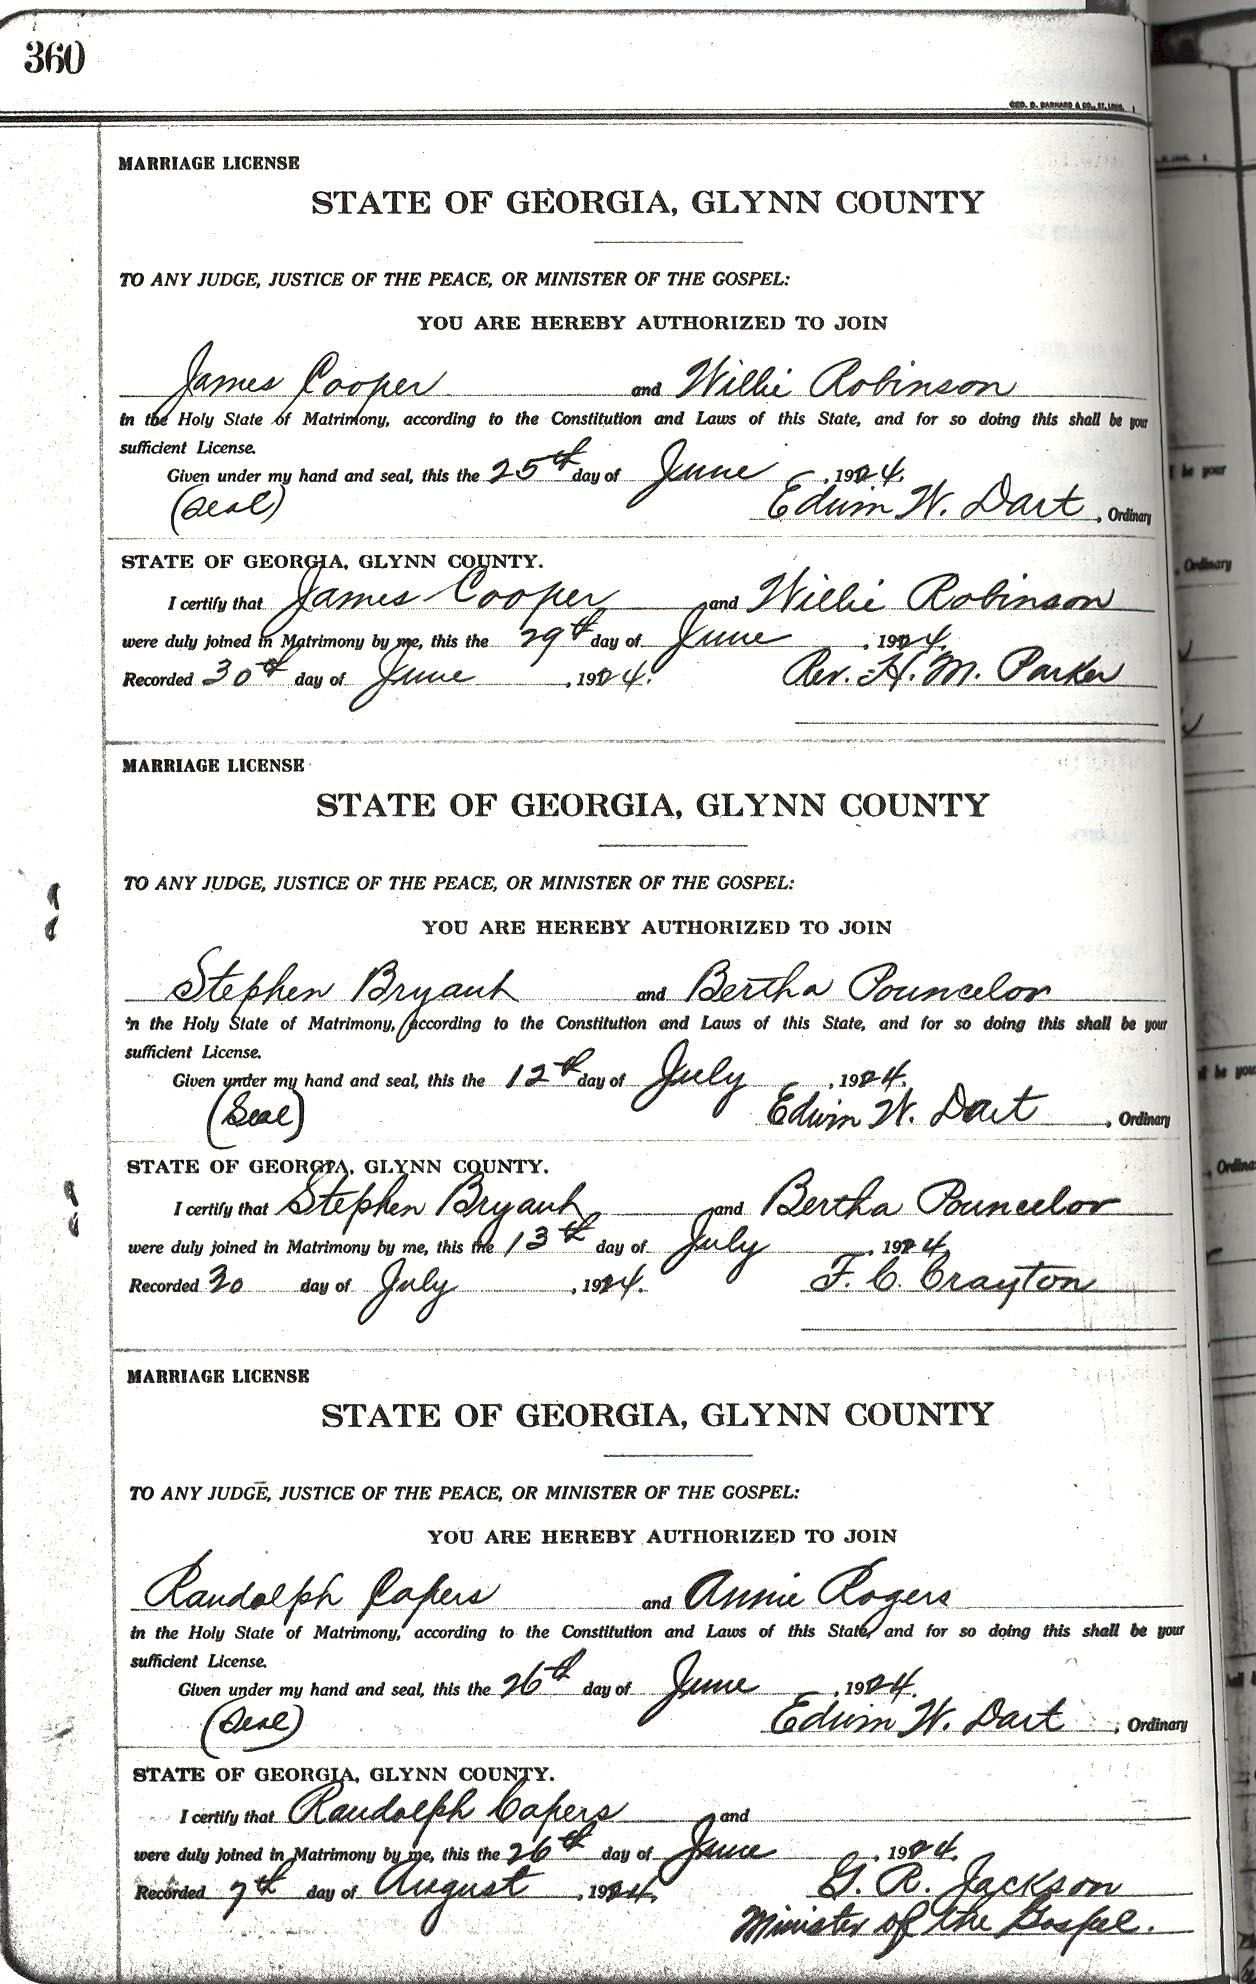 360
GEO. D. BARNARD & CO., ST. LOUIS.
MARRIAGE LICENSE
STATE OF GEORGIA, GLYNN COUNTY
TO ANY JUDGE, JUSTICE OF THE PEACE, OR MINISTER OF THE GOSPEL:
YOU ARE HEREBY AUTHORIZED TO JOIN
James Cooper and Willie Robinson
in the Holy State of Matrimony, according to the Constitution and Laws of this State, and for so doing this shall be your
sufficient License.
Given under my hand and seal, this the 25th day of June, 1924.
(Seal) Edwin W. Dart, Ordinary
STATE OF GEORGIA, GLYNN COUNTY.
I certify that James Cooper and Willie Robinson
were duly joined in Matrimony by me, this the 29th day of June, 1924.
Recorded 30th day of June, 1924. Rev. H. M. Parker
MARRIAGE LICENSE
STATE OF GEORGIA, GLYNN COUNTY
TO ANY JUDGE, JUSTICE OF THE PEACE, OR MINISTER OF THE GOSPEL:
YOU ARE HEREBY AUTHORIZED TO JOIN
Stephen Bryant and Bertha Pouncelor
in the Holy State of Matrimony, according to the Constitution and Laws of this State, and for so doing this shall be your
sufficient License.
Given under my hand and seal, this the 12th day of July, 1924.
(Seal) Edwin W. Dart, Ordinary
STATE OF GEORGIA, GLYNN COUNTY.
I certify that Stephen Bryant and Bertha Pouncelor
were duly joined in Matrimony by me, this the 13th day of July, 1924.
Recorded 30 day of July, 1924. F. C. Crayton
MARRIAGE LICENSE
STATE OF GEORGIA, GLYNN COUNTY
TO ANY JUDGE, JUSTICE OF THE PEACE, OR MINISTER OF THE GOSPEL:
YOU ARE HEREBY AUTHORIZED TO JOIN
Randolph Capers and Annie Rogers
in the Holy State of Matrimony, according to the Constitution and Laws of this State, and for so doing this shall be your
sufficient License.
Given under my hand and seal, this the 26th day of June, 1924.
(Seal) Edwin W. Dart, Ordinary
STATE OF GEORGIA, GLYNN COUNTY.
I certify that Randolph Capers and
were duly joined in Matrimony by me, this the 26th day of June, 1924.
Recorded 7th day of August, 1924. G. R. Jackson
Minister of the Gospel.